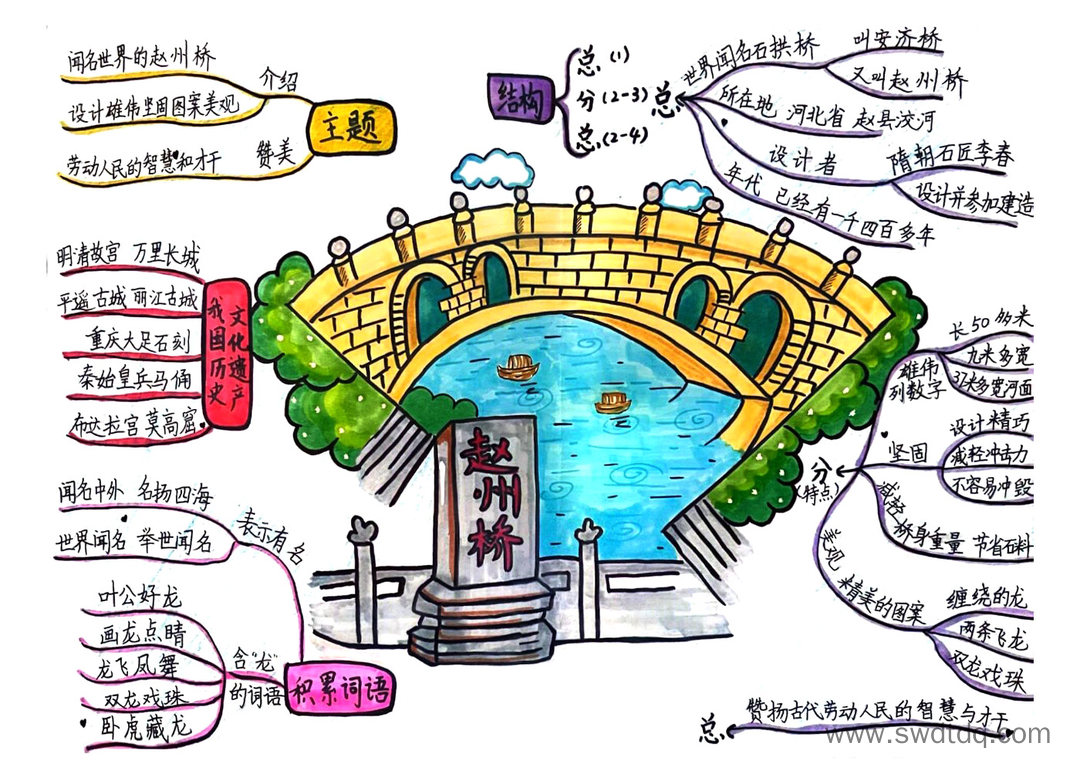 闻名世界的赵州桥
设计雄伟坚固图案美观
介绍
劳动人民的智慧和才干
赞美
主题
结构
总(1)
分(2-3)
总(2-4)
总
世界闻名石拱桥
叫安济桥
又叫赵州桥
所在地 河北省 赵县洨河
设计者
隋朝石匠李春
设计并参加建造
年代 已经有一千四百多年
明清故宫 万里长城
平遥古城 丽江古城
重庆大足石刻
秦始皇兵马俑
布达拉宫 莫高窟
我国历史
文化遗产
闻名中外 名扬四海
世界闻名 举世闻名
表示有名
叶公好龙
画龙点睛
龙飞凤舞
双龙戏珠
卧虎藏龙
含“龙”
的词语
积累词语
赵州桥
分
(特点)
雄伟
列数字
长50多米
九米多宽
37米多宽河面
坚固
设计精巧
减轻冲击力
不容易冲毁
减轻
桥身重量 节省石料
美观
精美的图案
缠绕的龙
两条飞龙
双龙戏珠
总
赞扬古代劳动人民的智慧与才干
www.swdtdq.com